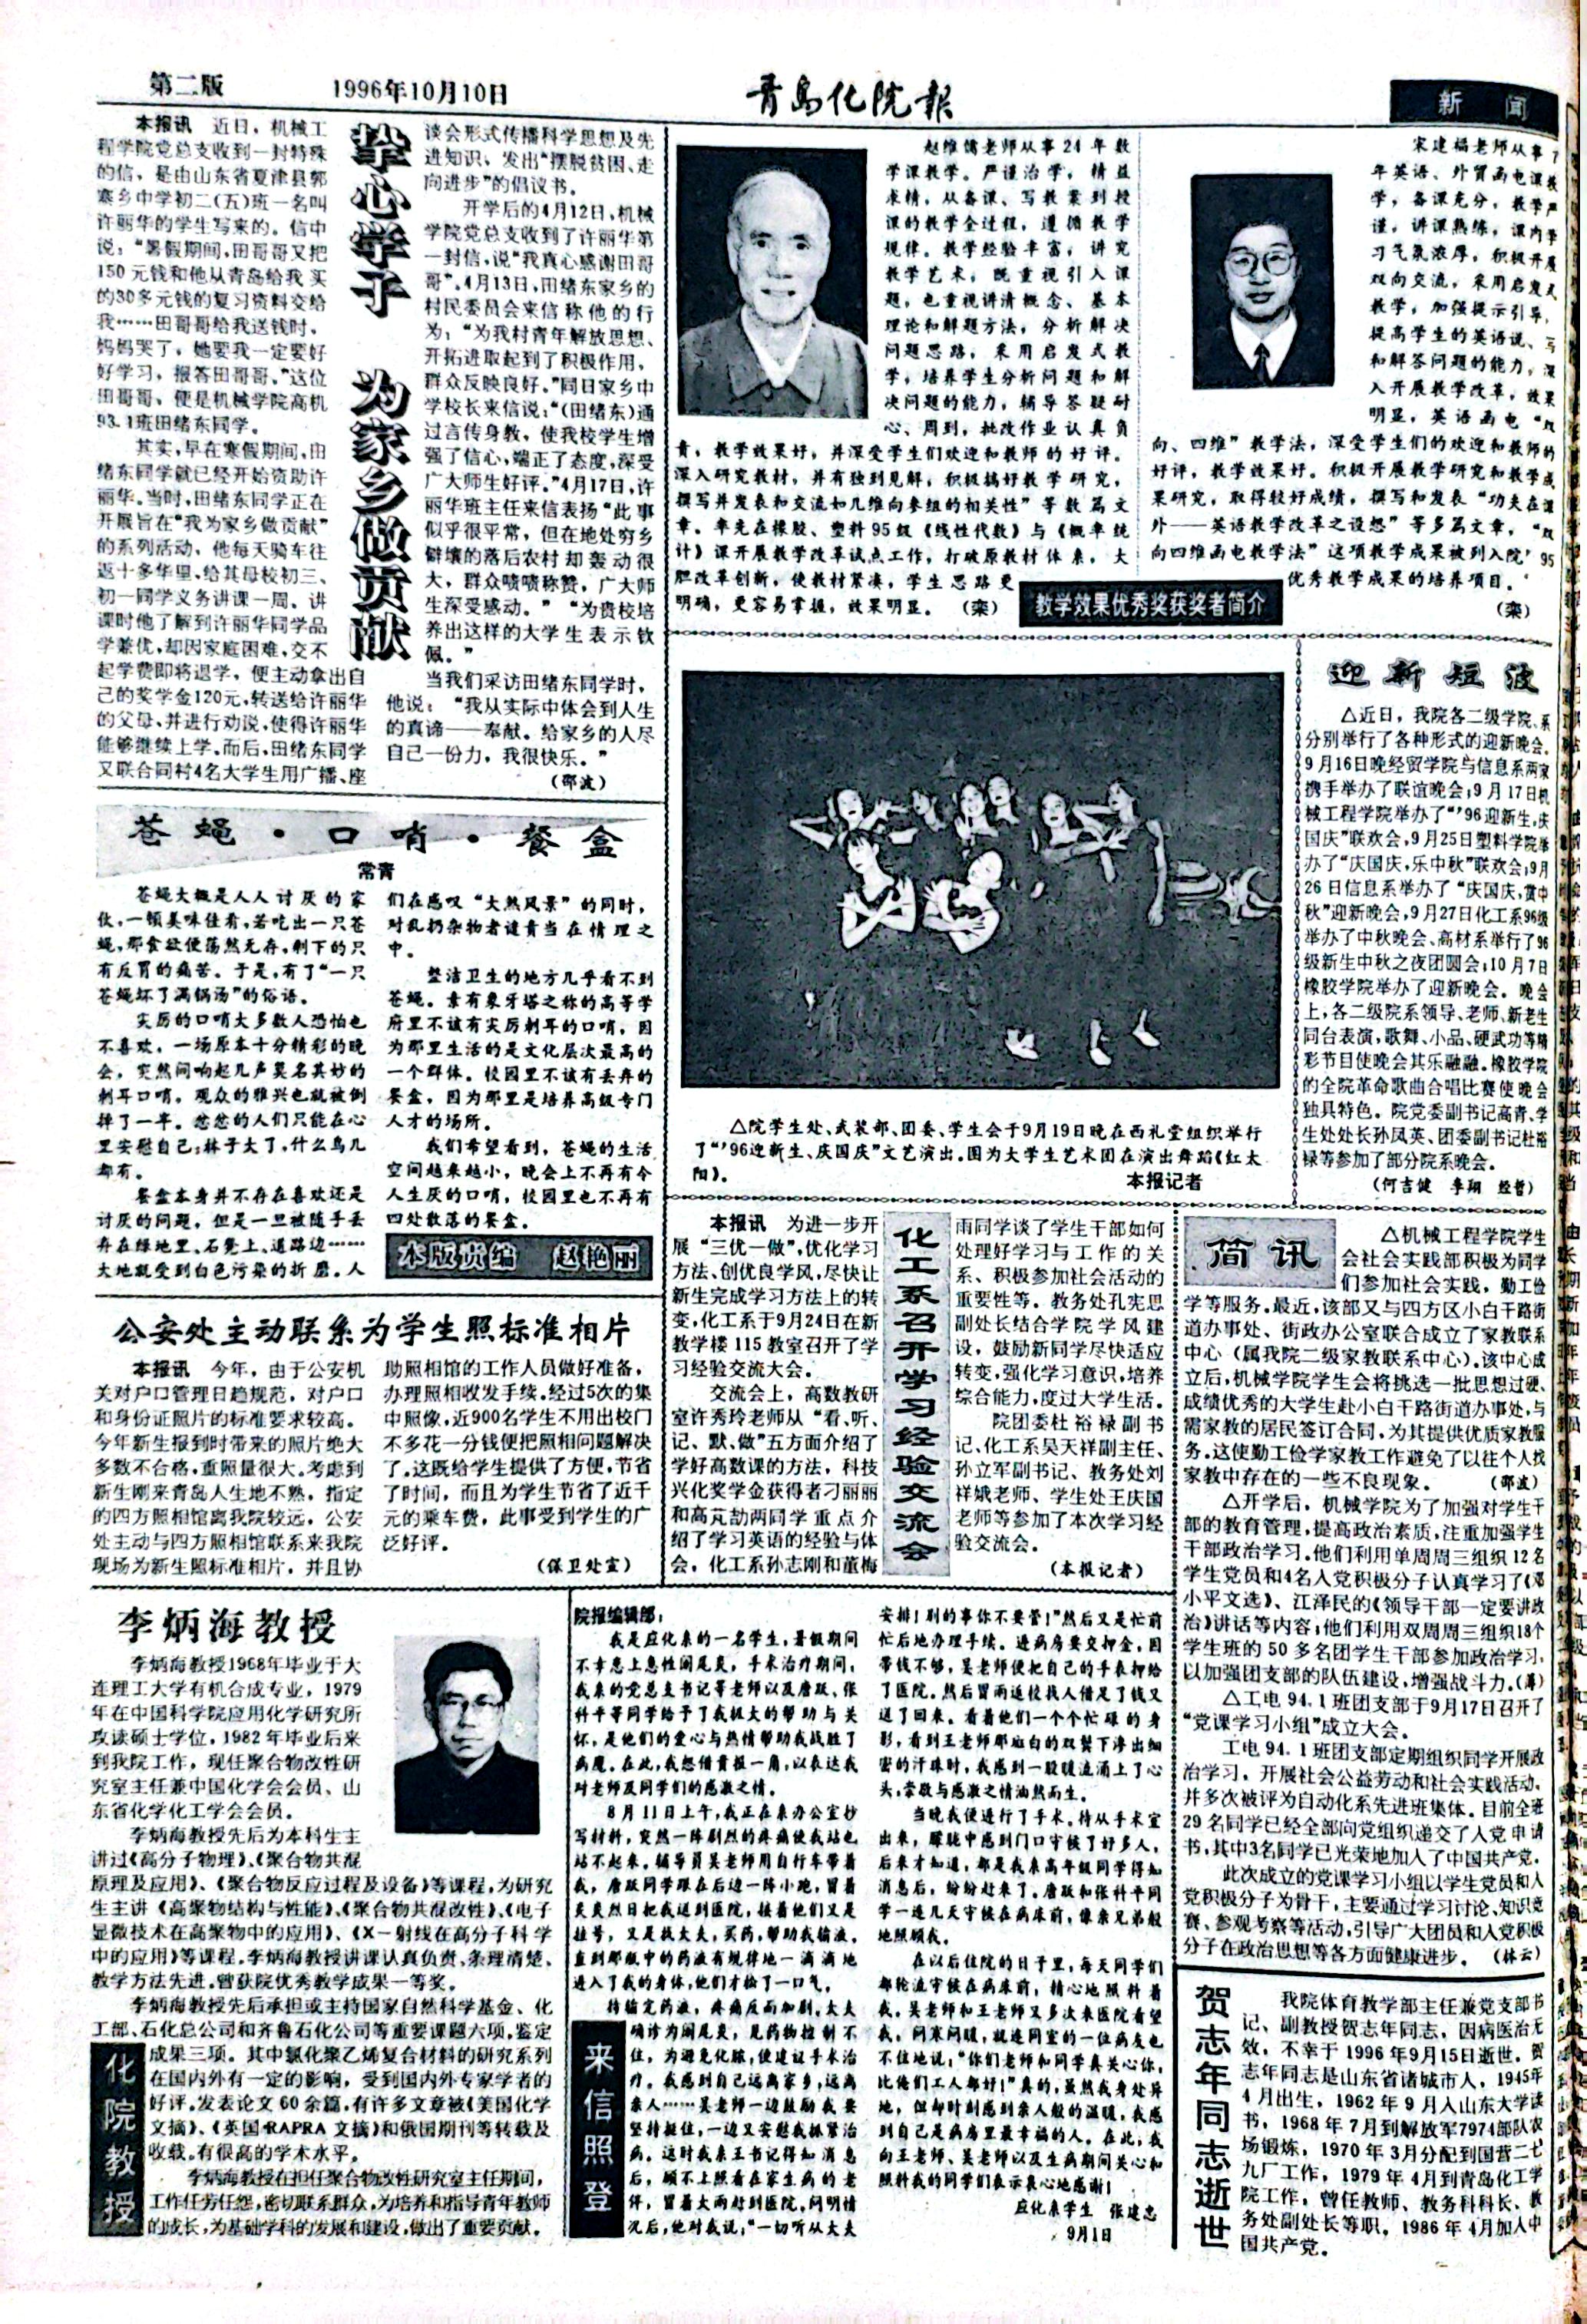 第二版
1996年10月10日
青岛化院报
新闻
挚心学子 为家乡做贡献
本报讯 近日，机械工
程学院党总支收到一封特殊
的信，是由山东省夏津县郭
寨乡中学初二(五)班一名叫
许丽华的学生写来的。信中
说：“暑假期间，田哥哥又把
150元钱和他从青岛给我买
的30多元钱的复习资料交给
我……田哥哥给我送钱时，
妈妈哭了，她要我一定要好
好学习，报答田哥哥。”这位
田哥哥，便是机械学院高机
93.1班田绪东同学。
其实，早在寒假期间，田
绪东同学就已经开始资助许
丽华。当时，田绪东同学正在
开展旨在“我为家乡做贡献”
的系列活动，他每天骑车往
返十多华里，给其母校初三、
初一同学义务讲课一周。讲
课时他了解到许丽华同学品
学兼优，却因家庭困难，交不
起学费即将退学，便主动拿出自
己的奖学金120元，转送给许丽华
的父母，并进行劝说，使得许丽华
能够继续上学。而后，田绪东同学
又联合同村4名大学生用广播、座
谈会形式传播科学思想及先
进知识，发出“摆脱贫困、走
向进步”的倡议书。
开学后的4月12日，机械
学院党总支收到了许丽华第
一封信，说“我真心感谢田哥
哥”。4月13日，田绪东家乡的
村民委员会来信称他的行
为：“为我村青年解放思想、
开拓进取起到了积极作用，
群众反映良好。”同日家乡中
学校长来信说：“(田绪东)通
过言传身教，使我校学生增
强了信心，端正了态度，深受
广大师生好评。”4月17日，许
丽华班主任来信表扬“此事
似乎很平常，但在地处穷乡
僻壤的落后农村却轰动很
大，群众啧啧称赞，广大师
生深受感动。”“为贵校培
养出这样的大学生表示钦
佩。”
当我们采访田绪东同学时，
他说：“我从实际中体会到人生
的真谛——奉献。给家乡的人尽
自己一份力，我很快乐。”
(邵波)
赵维儒老师从事24年数
学课教学。严谨治学，精益
求精，从备课、写教案到授
课的教学全过程，遵循教学
规律。教学经验丰富，讲究
教学艺术，既重视引入课
题，也重视讲清概念、基本
理论和解题方法，分析解决
问题思路，采用启发式教
学，培养学生分析问题和解
决问题的能力，辅导答疑耐
心、周到，批改作业认真负
责，教学效果好，并深受学生们欢迎和教师的好评。
深入研究教材，并有独到见解，积极搞好教学研究，
撰写并发表和交流如几维向参组的相关性”等数篇文
章。率先在橡胶、塑料95级《线性代数》与《概率统
计》课开展教学改革试点工作，打破原教材体系，大
胆改革创新，使教材紧凑，学生思路更
明确，更容易掌握，效果明显。(栾)
教学效果优秀奖获奖者简介
宋建福老师从事7
年英语、外贸函电课教
学，备课充分，教学严
谨，讲课熟练，课内学
习气氛浓厚，积极开展
双向交流，采用启发式
教学，加强提示引导，
提高学生的英语说、写
和解答问题的能力，深
入开展教学改革，效果
明显，英语函电“双
向、四维”教学法，深受学生们的欢迎和教师的
好评，教学效果好。积极开展教学研究和教学成
果研究，取得较好成绩，撰写和发表“功夫在课
外——英语教学改革之设想”等多篇文章，“双
向四维函电教学法”这项教学成果被列入院’95
优秀教学成果的培养项目。
(栾)
△院学生处、武装部、团委、学生会于9月19日晚在西礼堂组织举行
了“’96迎新生、庆国庆”文艺演出。图为大学生艺术团在演出舞蹈《红太
阳》。
本报记者
迎新短波
△近日，我院各二级学院、系
分别举行了各种形式的迎新晚会。
9月16日晚经贸学院与信息系两家
携手举办了联谊晚会；9月17日机
械工程学院举办了“’96迎新生，庆
国庆”联欢会，9月25日塑料学院举
办了“庆国庆，乐中秋”联欢会；9月
26日信息系举办了“庆国庆，赏中
秋”迎新晚会，9月27日化工系96级
举办了中秋晚会、高材系举行了96
级新生中秋之夜团圆会；10月7日
橡胶学院举办了迎新晚会。晚会
上，各二级院系领导、老师、新老生
同台表演，歌舞、小品、硬武功等精
彩节目使晚会其乐融融。橡胶学院
的全院革命歌曲合唱比赛使晚会
独具特色。院党委副书记高青、学
生处处长孙凤英、团委副书记杜裕
禄等参加了部分院系晚会。
(何吉健 李翔 经哲)
苍蝇·口哨·餐盒
常青
苍蝇大概是人人讨厌的家
伙，一顿美味佳肴，若吃出一只苍
蝇，那食欲便荡然无存，剩下的只
有反胃的痛苦。于是，有了“一只
苍蝇坏了满锅汤”的俗语。
尖厉的口哨大多数人恐怕也
不喜欢，一场原本十分精彩的晚
会，突然间响起几声莫名其妙的
刺耳口哨，观众的雅兴也就被倒
掉了一半。忿忿的人们只能在心
里安慰自己：林子大了，什么鸟儿
都有。
餐盒本身并不存在喜欢还是
讨厌的问题，但是一旦被随手丢
弃在绿地里、石凳上、道路边……
大地就受到白色污染的折磨。人
们在感叹“大煞风景”的同时，
对乱扔杂物者谴责当在情理之
中。
整洁卫生的地方几乎看不到
苍蝇。素有象牙塔之称的高等学
府里不该有尖厉刺耳的口哨，因
为那里生活的是文化层次最高的
一个群体。校园里不该有丢弃的
餐盒，因为那里是培养高级专门
人才的场所。
我们希望看到，苍蝇的生活
空间越来越小，晚会上不再有令
人生厌的口哨，校园里也不再有
四处散落的餐盒。
本版责编 赵艳丽
公安处主动联系为学生照标准相片
本报讯 今年，由于公安机
关对户口管理日趋规范，对户口
和身份证照片的标准要求较高。
今年新生报到时带来的照片绝大
多数不合格，重照量很大。考虑到
新生刚来青岛人生地不熟，指定
的四方照相馆离我院较远，公安
处主动与四方照相馆联系来我院
现场为新生照标准相片，并且协
助照相馆的工作人员做好准备，
办理照相收发手续。经过5次的集
中照像，近900名学生不用出校门
不多花一分钱便把照相问题解决
了。这既给学生提供了方便，节省
了时间，而且为学生节省了近千
元的乘车费，此事受到学生的广
泛好评。
(保卫处宣)
化工系召开学习经验交流会
本报讯 为进一步开
展“三优一做”，优化学习
方法、创优良学风，尽快让
新生完成学习方法上的转
变，化工系于9月24日在新
教学楼115教室召开了学
习经验交流大会。
交流会上，高数教研
室许秀玲老师从“看、听、
记、默、做”五方面介绍了
学好高数课的方法，科技
兴化奖学金获得者刁丽丽
和高芃劼两同学重点介
绍了学习英语的经验与体
会，化工系孙志刚和董梅
雨同学谈了学生干部如何
处理好学习与工作的关
系、积极参加社会活动的
重要性等。教务处孔宪思
副处长结合学院学风建
设，鼓励新同学尽快适应
转变，强化学习意识，培养
综合能力，度过大学生活。
院团委杜裕禄副书
记、化工系吴天祥副主任、
孙立军副书记、教务处刘
祥娥老师、学生处王庆国
老师等参加了本次学习经
验交流会。
(本报记者)
简讯
△机械工程学院学生
会社会实践部积极为同学
们参加社会实践，勤工俭
学等服务。最近，该部又与四方区小白干路街
道办事处、街政办公室联合成立了家教联系
中心(属我院二级家教联系中心)。该中心成
立后，机械学院学生会将挑选一批思想过硬、
成绩优秀的大学生赴小白干路街道办事处，与
需家教的居民签订合同，为其提供优质家教服
务。这使勤工俭学家教工作避免了以往个人找
家教中存在的一些不良现象。(邵波)
△开学后，机械学院为了加强对学生干
部的教育管理，提高政治素质，注重加强学生
干部政治学习。他们利用单周周三组织12名
学生党员和4名入党积极分子认真学习了《邓
小平文选》、江泽民的《领导干部一定要讲政
治》讲话等内容；他们利用双周周三组织18个
学生班的50多名团学生干部参加政治学习，
以加强团支部的队伍建设，增强战斗力。
△工电94.1班团支部于9月17日召开了
“党课学习小组”成立大会。
工电94.1班团支部定期组织同学开展政
治学习，开展社会公益劳动和社会实践活动，
并多次被评为自动化系先进班集体。目前全班
29名同学已经全部向党组织递交了入党申请
书，其中3名同学已光荣地加入了中国共产党。
此次成立的党课学习小组以学生党员和入
党积极分子为骨干，主要通过学习讨论、知识竞
赛、参观考察等活动，引导广大团员和入党积极
分子在政治思想等各方面健康进步。(林云)
李炳海教授
李炳海教授1968年毕业于大
连理工大学有机合成专业，1979
年在中国科学院应用化学研究所
攻读硕士学位，1982年毕业后来
到我院工作，现任聚合物改性研
究室主任兼中国化学会会员、山
东省化学化工学会会员。
李炳海教授先后为本科生主
讲过《高分子物理》、《聚合物共混
原理及应用》、《聚合物反应过程及设备》等课程，为研究
生主讲《高聚物结构与性能》、《聚合物共混改性》、《电子
显微技术在高聚物中的应用》、《X－射线在高分子科学
中的应用》等课程。李炳海教授讲课认真负责，条理清楚，
教学方法先进，曾获院优秀教学成果一等奖。
李炳海教授先后承担或主持国家自然科学基金、化
工部、石化总公司和齐鲁石化公司等重要课题六项，鉴定
成果三项。其中氯化聚乙烯复合材料的研究系列
在国内外有一定的影响，受到国内外专家学者的
好评。发表论文60余篇，有许多文章被《美国化学
文摘》、《英国RAPRA文摘》和俄国期刊等转载及
收载。有很高的学术水平。
李炳海教授在担任聚合物改性研究室主任期间，
工作任劳任怨，密切联系群众，为培养和指导青年教师
的成长，为基础学科的发展和建设，做出了重要贡献。
化院教授
来信照登
院报编辑部：
我是应化系的一名学生，暑假期间
不幸患上急性阑尾炎，手术治疗期间，
我系的党总支书记等老师以及唐跃、张
科平等同学给予了我极大的帮助与关
怀，是他们的爱心与热情帮助我战胜了
病魔。在此，我想借贵报一角，以表达我
对老师及同学们的感激之情。
8月11日上午，我正在系办公室抄
写材料，突然一阵剧烈的疼痛使我站也
站不起来。辅导员吴老师用自行车带着
我，唐跃同学跟在后边一阵小跑，冒着
炎炎烈日把我送到医院，接着他们又是
挂号，又是找大夫，买药，帮助我输液。
直到那瓶中的药液有规律地一滴滴地
进入了我的身体，他们才松了一口气。
待输完药液，疼痛反而加剧，大夫
确诊为阑尾炎，见药物控制不
住，为避免化脓，便建议手术治
疗。我感到自己远离家乡，远离
亲人……吴老师一边鼓励我要
坚持挺住，一边又安慰我抓紧治
病。这时我系王书记得知消息
后，顾不上照看在家生病的老
伴，冒着大雨赶到医院，问明情
况后，他对我说：“一切听从大夫
安排！别的事你不要管！”然后又是忙前
忙后地办理手续。进病房要交押金，因
带钱不够，吴老师便把自己的手表押给
了医院。然后冒雨返校找人借足了钱又
送了回来。看着他们一个个忙碌的身
影，看到王老师那斑白的双鬓下渗出细
密的汗珠时，我感到一股暖流涌上了心
头，崇敬与感激之情油然而生。
当晚我便进行了手术。待从手术室
出来，朦胧中感到门口守候了好多人，
后来才知道，都是我系高年级同学得知
消息后，纷纷赶来了。唐跃和张科平同
学一连几天守候在病床前，像亲兄弟般
地照顾我。
在以后住院的日子里，每天同学们
都轮流守候在病床前，精心地照料着
我。吴老师和王老师又多次来医院看望
我，问寒问暖，就连同室的一位病友也
不住地说：“你们老师和同学真关心你，
比俺们工人都好！”真的，虽然我身处异
地，但却时刻感到亲人般的温暖，我感
到自己是病房里最幸福的人。在此，我
向王老师、吴老师以及生病期间关心和
照料我的同学们表示衷心地感谢！
应化系学生 张建忠
9月1日
贺志年同志逝世
我院体育教学部主任兼党支部书
记、副教授贺志年同志，因病医治无
效，不幸于1996年9月15日逝世。贺
志年同志是山东省诸城市人，1945年
4月出生，1962年9月入山东大学读
书，1968年7月到解放军7974部队农
场锻炼，1970年3月分配到国营二七
九厂工作，1979年4月到青岛化工学
院工作，曾任教师、教务科科长、教
务处副处长等职。1986年4月加入中
国共产党。